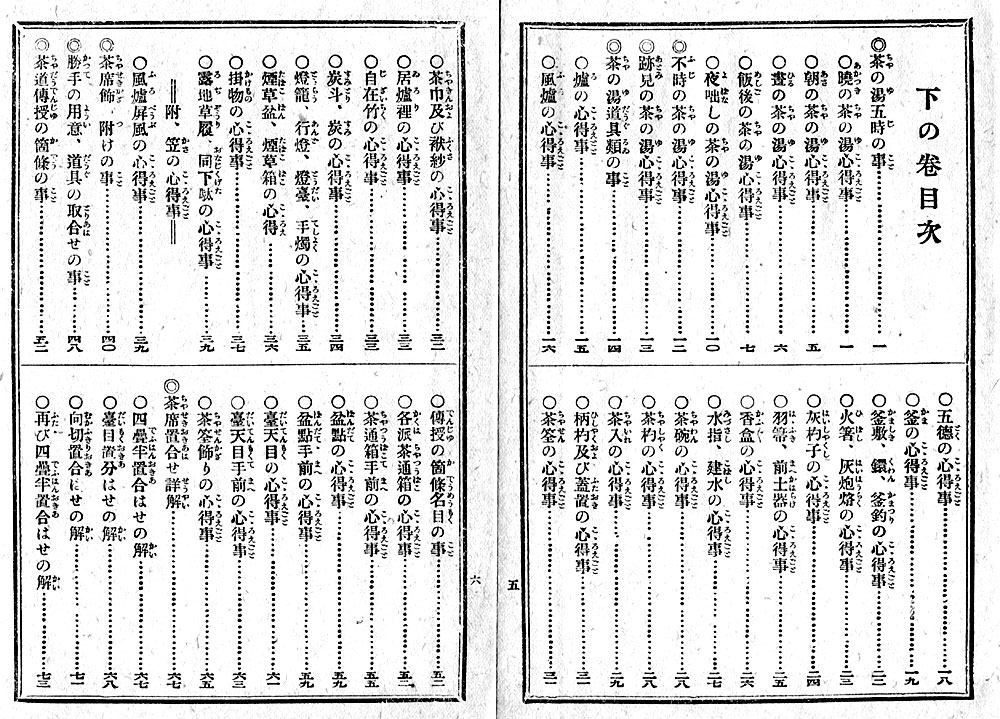 下の卷目次
◎茶の湯五時の事……一
○曉の茶の湯心得事……一
○朝の茶の湯心得事……五
○晝の茶の湯心得事……六
○飯後の茶の湯心得事……七
○夜咄しの茶の湯心得事……一〇
○不時の茶の湯心得事……一二
○跡見の茶の湯心得事……一三
◎茶の湯道具類の事……一四
○爐の心得事……一五
○風爐の心得事……一六
○五德の心得事……一八
○釜の心得事……一九
○釜敷、鐶、釜釣の心得事……二二
○火箸、灰炮烙の心得事……二三
○灰杓子の心得事……二四
○羽箒、前土器の心得事……二五
○香盒の心得事……二六
○水指、建水の心得事……二七
○茶碗の心得事……二八
○茶杓の心得事……二八
○茶入の心得事……二九
○柄杓及び蓋置の心得事……三一
○茶筌の心得事……三一
五
○茶巾及び袱紗の心得事……三二
○居爐裡の心得事……三三
○自在竹の心得事……三三
○炭斗、炭の心得事……三四
○燈籠、行燈、燈臺、手燭の心得事……三五
○煙草盆、煙草箱の心得……三六
○掛物の心得事……三七
○露地草履、同下駄の心得事……三九
══附、笠の心得事══
○風爐屏風の心得事……三九
◎茶席飾り附けの事……四〇
◎勝手の用意、道具の取合せの事……四八
◎茶道傳授の箇條の事……五二
○傳授の箇條名目の事……五二
○各派茶通箱の心得事……五二
○茶通箱手前の心得事……五五
○盆點の心得事……五九
○盆點手前の心得事……五九
○臺天目の心得事……六一
○臺天目手前の心得事……六三
○茶筌飾りの心得事……六五
◎茶席置合せ詳解……六七
○四疊半置合はせの解……六七
○臺目置分はせの解……六八
○向切置合はせの解……七一
○再び四疊半置合はせの解……七三
六